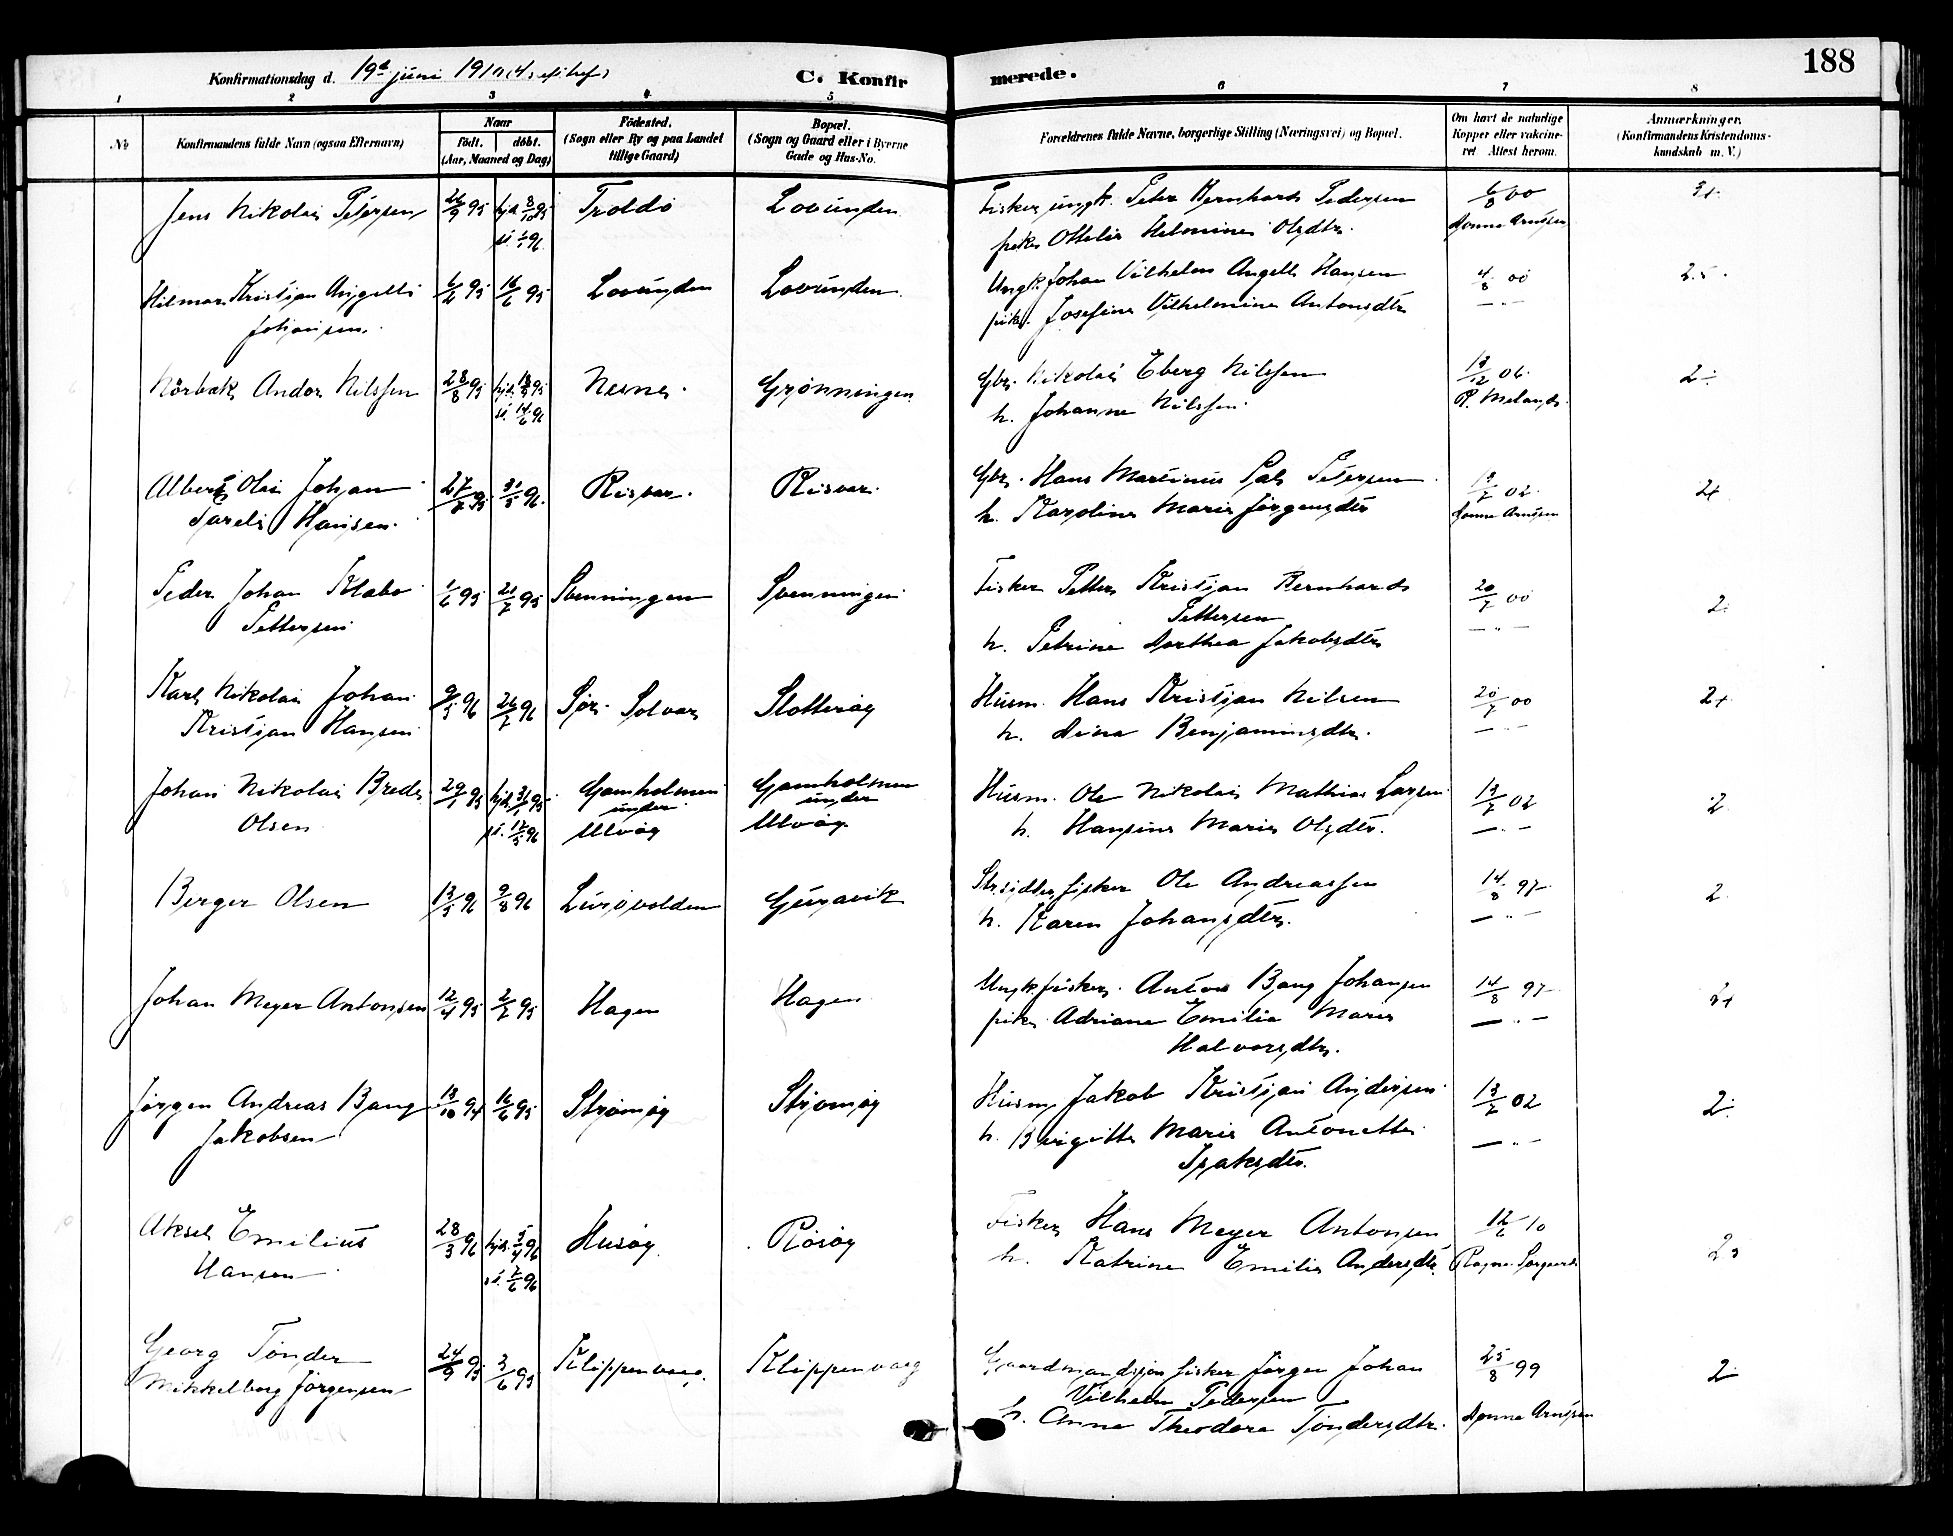 188
Konfirmationsdag d. 19de juni 1910
C. Konfirmerede.
1 2 3 4 5 6 7 8
No
Konfirmandens fulde Navn (ogsaa Efternavn)
Naar
født. døbt.
(Aar, Maaned og Dag)
Fødested.
(Sogn eller By og paa Landet
tillige Gaard)
Bopæl.
(Sogn og Gaard eller i Byerne
Gade og Hus-No.
Forældrenes fulde Navne, borgerlige Stilling (Næringsvei) og Bopæl.
Om havt de naturlige
Kopper eller vakcine-
ret Attest herom.
Anmærkninger.
(Konfirmandens Kristendoms-
kundskab m. V.)
Jens Nikolai Petersen 26/9 95 hjd. 8/10 95 Troldö Lovunden Fisker, ungk. Peter Bernhard Pedersen 6/8 00 3+
st. 1/1 96 pike Ottelie Helmine Olsdtr. Dønna Arntsen
Hilmar Kristjan Angell 6/4 95 16/6 95 Lovunden Lovunden Ungk. Johan Vilhelm Angell Hansen 4/8 00 2.5
Johansen. pike. Josefine Vilhelmine Antonsdtr — " —
Nörbæk Andor Nilssen 28/8 95 hjd. 18/9 95 Nesne. Grønningen Gbr. Nikolai Eberg Nilssen 13/12 06 2÷
st. 14/6 96 h. Johanne Nilssen. P. Meland
Albert Olai Johan 27/7 95 31/5 96. Risvær. Risvær. Gbr. Hans Martinus Pals Petersen 13/7 02. 2+
Pareli Hansen. h. Karoline Marie Jörgensdtr Dønna Arntsen
Peder Johan Klabo 1/6 95 21/7 95 Svenningen Svenningen Fisker Petter Kristjan Bernhard 20/7 00 2÷
Pettersen Pettersen — " —
h. Petrine Dorthea Jakobsdtr
Karl Nikolai Johan 9/5 96 26/7 96 Sör-Solvær Slotterøy Husm. Hans Kristjan Nilsen 20/7 00 2+
Kristjan Hansen h. Dina Benjaminsdtr. — " —
Johan Nikolai Brede 29/1 95 hjd. 31/1 95 Gamholmen Gamholmen Husm. Ole Nikolai Mathias Larsen 13/7 02 2
Olsen st. 17/5 96 under under h. Hansine Marie Olsdtr. — " —
Alvøy Alvøy.
Berger Olsen 13/5 96 9/8 96 Lurövolden Guravik Strsidder, fisker Ole Andreassen 14/8 97 2
h. Karen Johansdtr. — " —
Johan Meyer Antonsen 12/4 95 2/7 95 Hagen Hagen Ungk. fisker. Anton Bang Johansen 14/8 97 2+
pike Adriane Emilia Marie — " —
Halvorsdtr.
Jørgen Andreas Bang 13/10 94 16/6 95 Strømøy Strømøy Husm. Jakob Kristjan Andersen 13/7 02 2÷
Jakobsen h. Birgitte Marie Antonette — " —
Isaksdtr.
Aksel Emilius 28/3 96 hjd. 5/4 96 Husøy Råsøy Fisker Hans Meyer Antonsen 12/6 10 2
Hansen st. 7/6 96 h. Katrine Emilie Andersdtr. Ragna
Georg Tönder 24/9 95 3/6 95 Klippenvaag. Klippenvaag Gaardmandssøn fisker Jörgen Johan 25/8 99 2
Mikkelborg Jörgensen Vilhelm Pedersen
h. Anna Theodora Töndersdtr. Dønna Arntsen